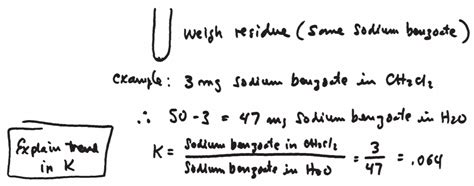 weigh residue (some sodium benzoate)
example: 3 mg sodium benzoate in CH2Cl2
∴ 50 - 3 = 47 mg sodium benzoate in H2O
K = Sodium benzoate in CH2Cl2 / Sodium benzoate in H2O = 3/47 = .064
Explain trend
in K